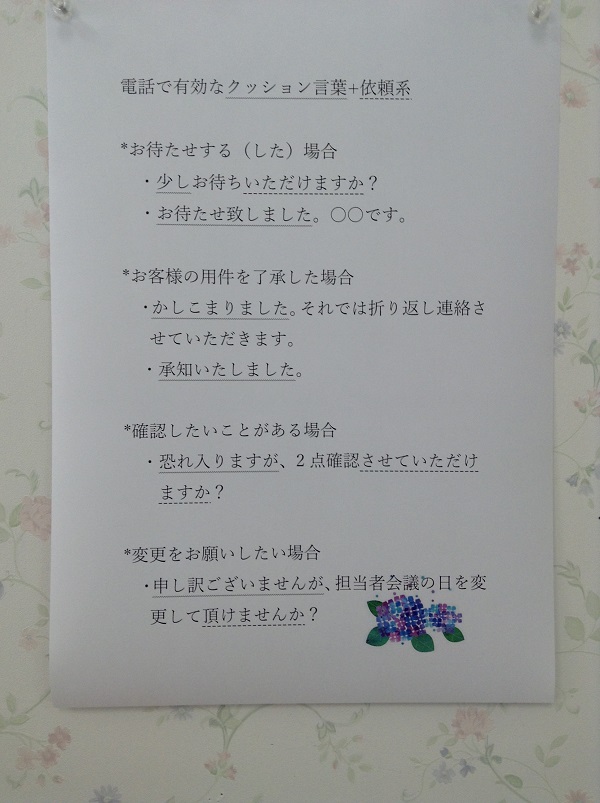 電話で有効なクッション言葉+依頼系
*お待たせする（した）場合
・少しお待ちいただけますか？
・お待たせ致しました。〇〇です。
*お客様の用件を了承した場合
・かしこまりました。それでは折り返し連絡さ
せていただきます。
・承知いたしました。
*確認したいことがある場合
・恐れ入りますが、２点確認させていただけ
ますか？
*変更をお願いしたい場合
・申し訳ございませんが、担当者会議の日を変
更して頂けませんか？